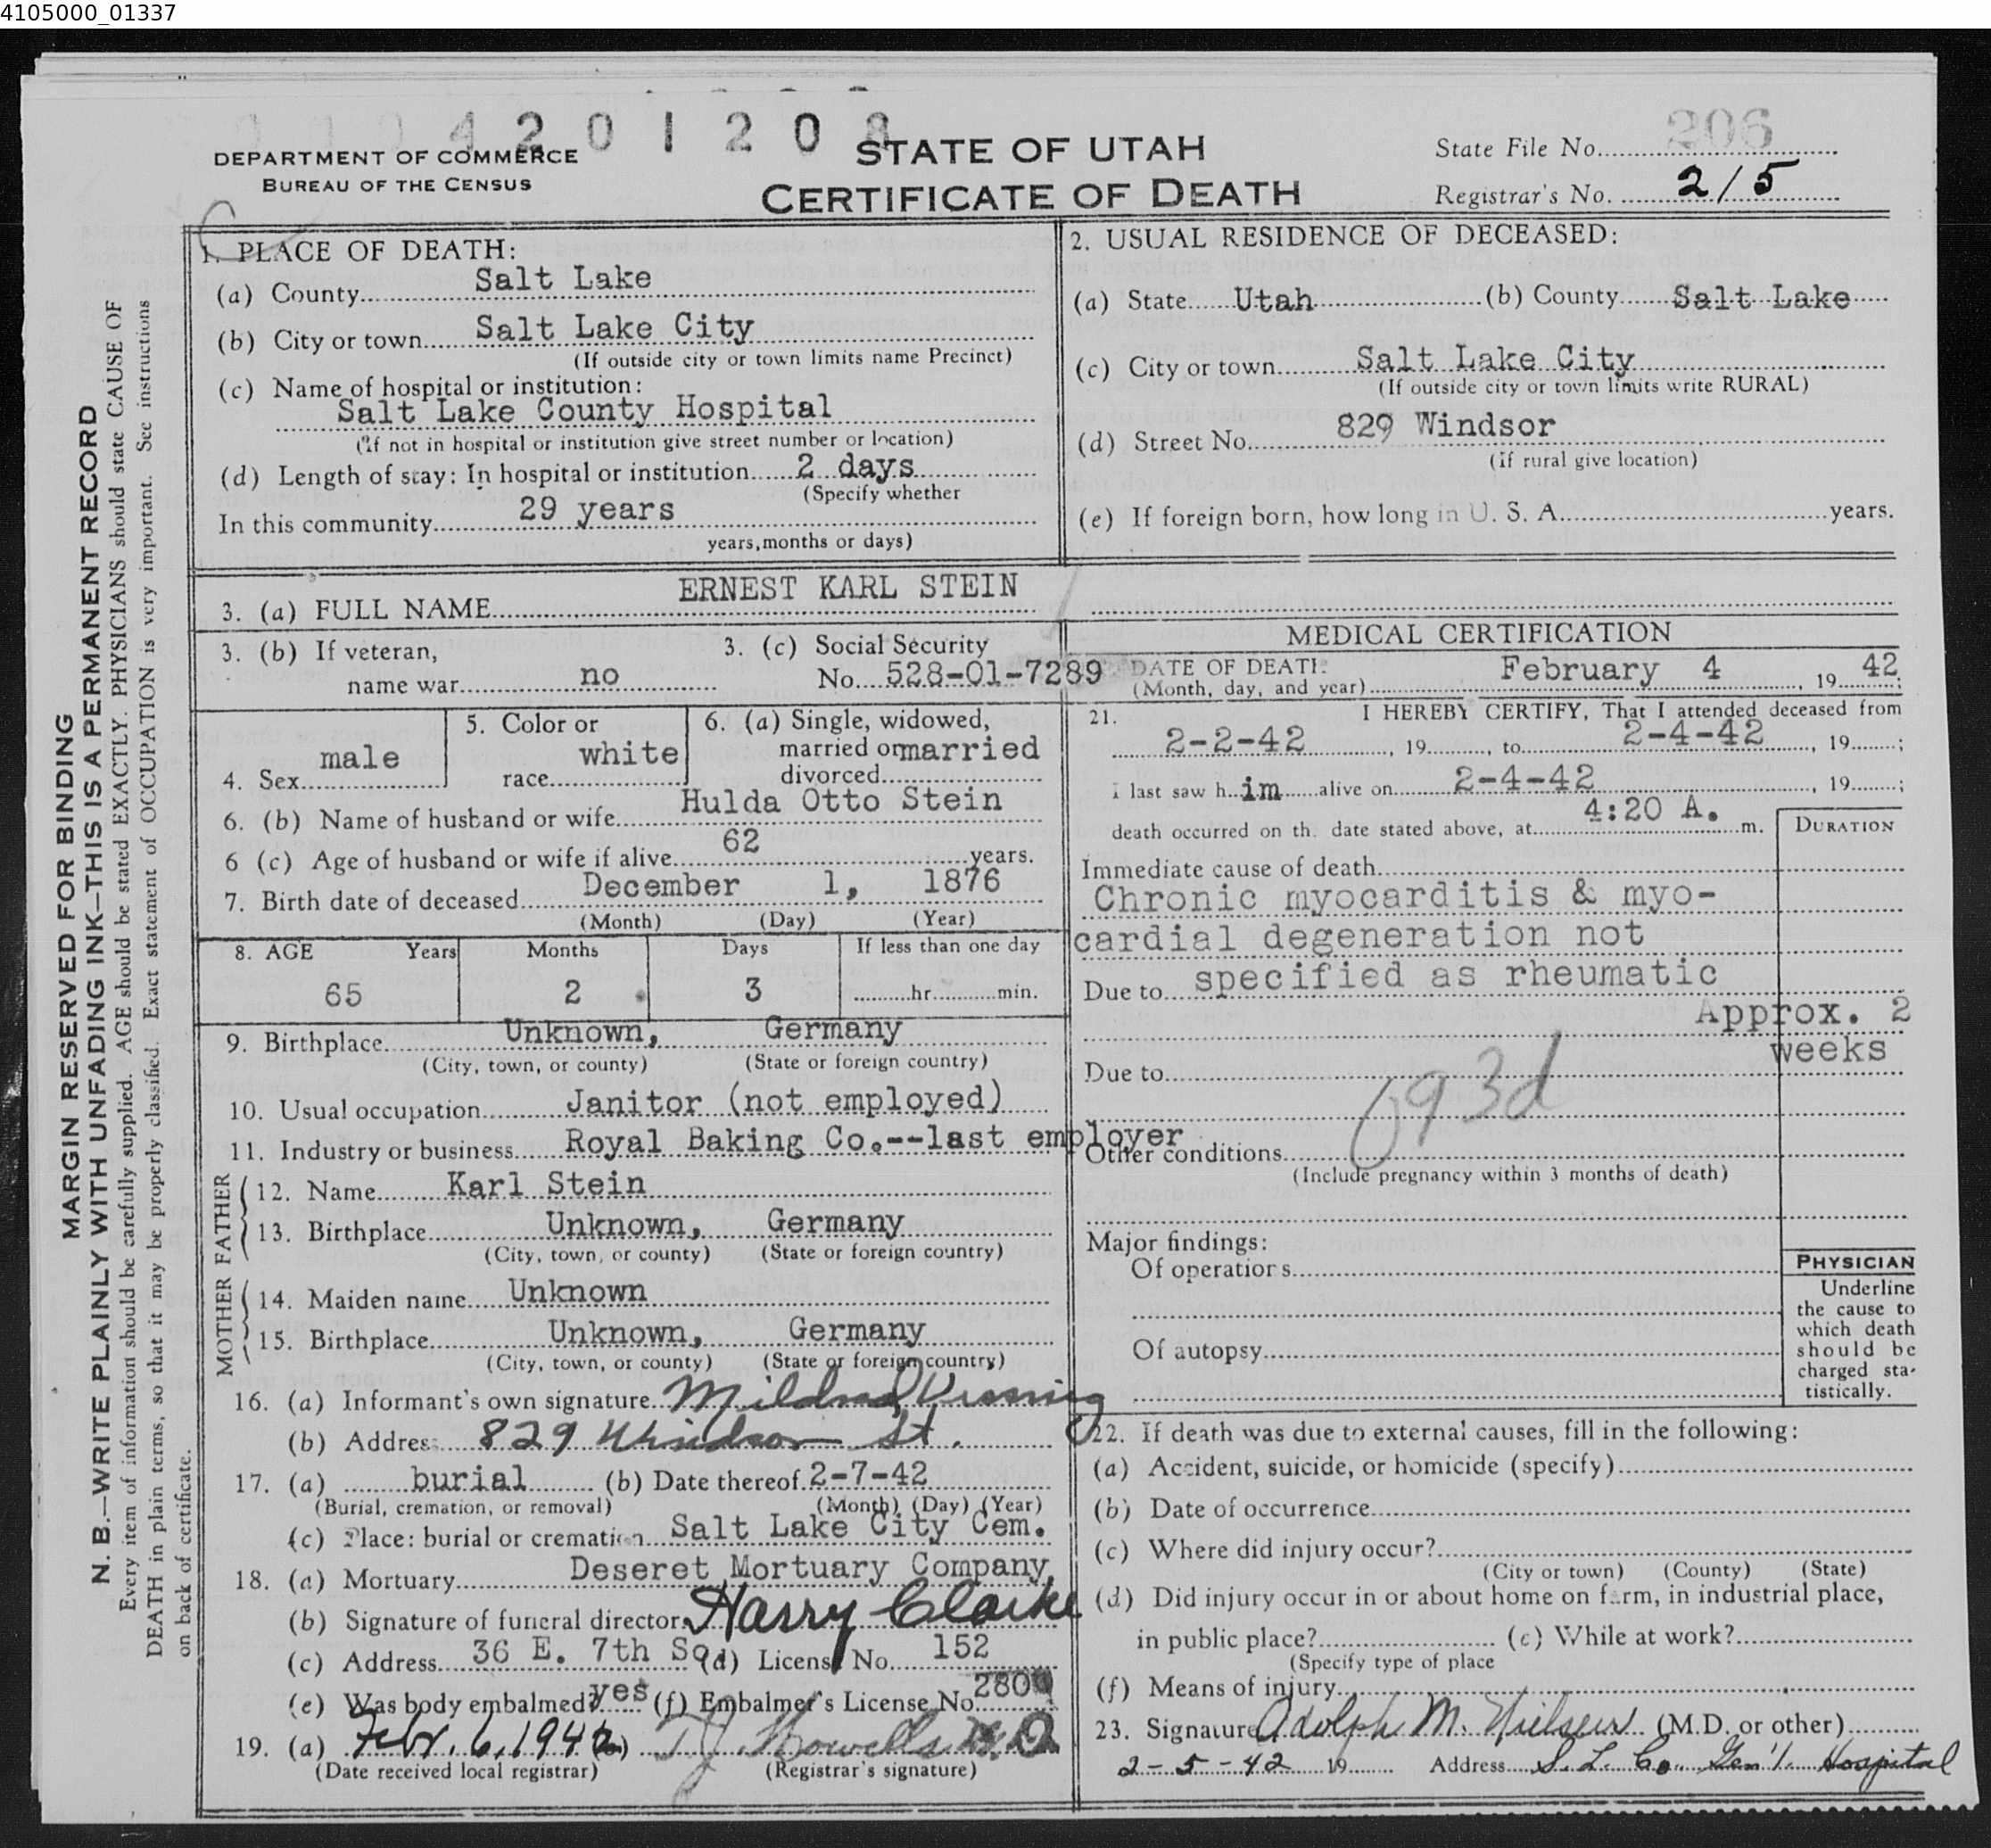 4105000_01337
0 0 0 4 2 0 1 2 0 8
DEPARTMENT OF COMMERCE
BUREAU OF THE CENSUS
STATE OF UTAH
CERTIFICATE OF DEATH
State File No. 206
Registrar's No. 215
MARGIN RESERVED FOR BINDING
N. B.—WRITE PLAINLY WITH UNFADING INK—THIS IS A PERMANENT RECORD
Every item of information should be carefully supplied. AGE should be stated EXACTLY. PHYSICIANS should state CAUSE OF
DEATH in plain terms, so that it may be properly classified. Exact statement of OCCUPATION is very important. See instructions
on back of certificate.
1. PLACE OF DEATH:
(a) County Salt Lake
(b) City or town Salt Lake City
(If outside city or town limits name Precinct)
(c) Name of hospital or institution:
Salt Lake County Hospital
(If not in hospital or institution give street number or location)
(d) Length of stay: In hospital or institution 2 days
(Specify whether
In this community 29 years
years, months or days)
2. USUAL RESIDENCE OF DECEASED:
(a) State Utah (b) County Salt Lake
(c) City or town Salt Lake City
(If outside city or town limits write RURAL)
(d) Street No. 829 Windsor
(If rural give location)
(e) If foreign born, how long in U. S. A. years.
3. (a) FULL NAME ERNEST KARL STEIN
3. (b) If veteran,
name war no
3. (c) Social Security
No. 528-01-7289
4. Sex male
5. Color or
race white
6. (a) Single, widowed,
married or married
divorced
6. (b) Name of husband or wife Hulda Otto Stein
6 (c) Age of husband or wife if alive 62 years.
7. Birth date of deceased December 1, 1876
(Month) (Day) (Year)
8. AGE Years Months Days If less than one day
65 2 3 hr. min.
9. Birthplace Unknown, Germany
(City, town, or county) (State or foreign country)
10. Usual occupation Janitor (not employed)
11. Industry or business Royal Baking Co.--last employer
FATHER
12. Name Karl Stein
13. Birthplace Unknown, Germany
(City, town, or county) (State or foreign country)
MOTHER
14. Maiden name Unknown
15. Birthplace Unknown, Germany
(City, town, or county) (State or foreign country)
16. (a) Informant's own signature Mildred
(b) Address 829 Windsor St.
17. (a) burial (b) Date thereof 2-7-42
(Burial, cremation, or removal) (Month) (Day) (Year)
(c) Place: burial or cremation Salt Lake City Cem.
18. (a) Mortuary Deseret Mortuary Company
(b) Signature of funeral director Harry Clarke
(c) Address 36 E. 7th So. (d) License No. 152
(e) Was body embalmed? yes (f) Embalmer's License No. 280
19. (a) Febr. 6, 1942 (b) T J Howells M.D.
(Date received local registrar) (Registrar's signature)
MEDICAL CERTIFICATION
DATE OF DEATH: February 4 , 19 42;
(Month, day, and year)
21. I HEREBY CERTIFY, That I attended deceased from
2-2-42 , 19 , to 2-4-42 , 19 ;
I last saw h im alive on 2-4-42 , 19 ;
death occurred on the date stated above, at 4:20 A. m.
DURATION
Immediate cause of death
Chronic myocarditis & myo-
cardial degeneration not
Due to specified as rheumatic
Approx. 2
weeks
Due to
93d
Other conditions
(Include pregnancy within 3 months of death)
Major findings:
Of operations
Of autopsy
PHYSICIAN
Underline
the cause to
which death
should be
charged sta-
tistically.
22. If death was due to external causes, fill in the following:
(a) Accident, suicide, or homicide (specify)
(b) Date of occurrence
(c) Where did injury occur?
(City or town) (County) (State)
(d) Did injury occur in or about home on farm, in industrial place,
in public place? (e) While at work?
(Specify type of place
(f) Means of injury
23. Signature Adolph M. Nielsen (M.D. or other)
2-5-42 19 Address S. L. Co. Gen'l. Hospital